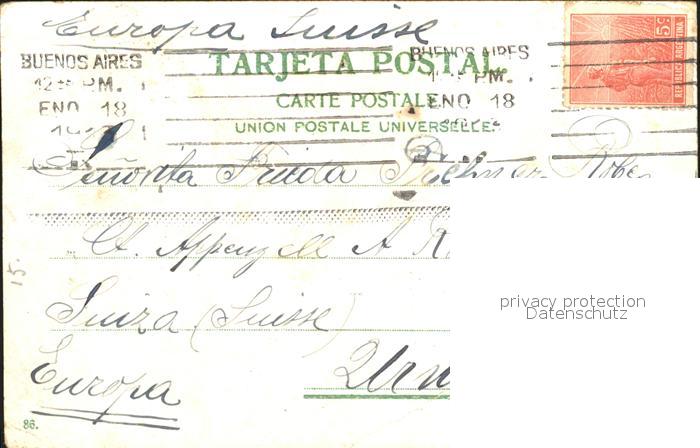 Europa Suisse
BUENOS AIRES
PM.
ENO 18
BUENOS AIRES
PM.
ENO 18
TARJETA POSTAL
CARTE POSTALE
UNION POSTALE UNIVERSELLE
5c
REPUBLICA ARGENTINA
Señorita Frieda
Ct. Appenzell A R
Suiza (Suisse)
Europa
Urn
privacy protection
Datenschutz
15.
86.